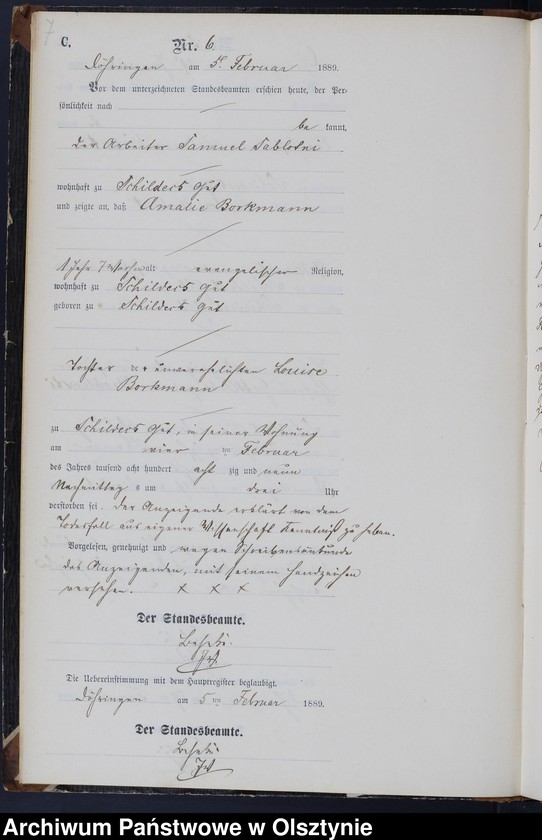 7
C.
Nr. 6
Döhringen am 5. Februar 1889.
Vor dem unterzeichneten Standesbeamten erschien heute, der Per-
sönlichkeit nach
be kannt,
der Arbeiter Samuel Sablotni
wohnhaft zu Schilders Gut
und zeigte an, daß Amalie Borkmann
1 Jahr 7 Wochen alt evangelischer Religion,
wohnhaft zu Schilders Gut
geboren zu Schilders Gut
Tochter der unverehelichten Louise
Borkmann
zu Schilders Gut, in seiner Wohnung
am vier ten Februar
des Jahres tausend acht hundert acht zig und neun
Nachmittags um drei Uhr
verstorben sei. Der Anzeigende erklärt von dem
Todesfall aus eigener Wissenschaft Kenntniß zu haben.
Vorgelesen, genehmigt und wegen Schreibensunkunde
des Anzeigenden, mit seinem Handzeichen
versehen. x x x
Der Standesbeamte.
Die Uebereinstimmung mit dem Hauptregister beglaubigt.
Döhringen am 5 ten Februar 1889.
Der Standesbeamte.
Archiwum Państwowe w Olsztynie